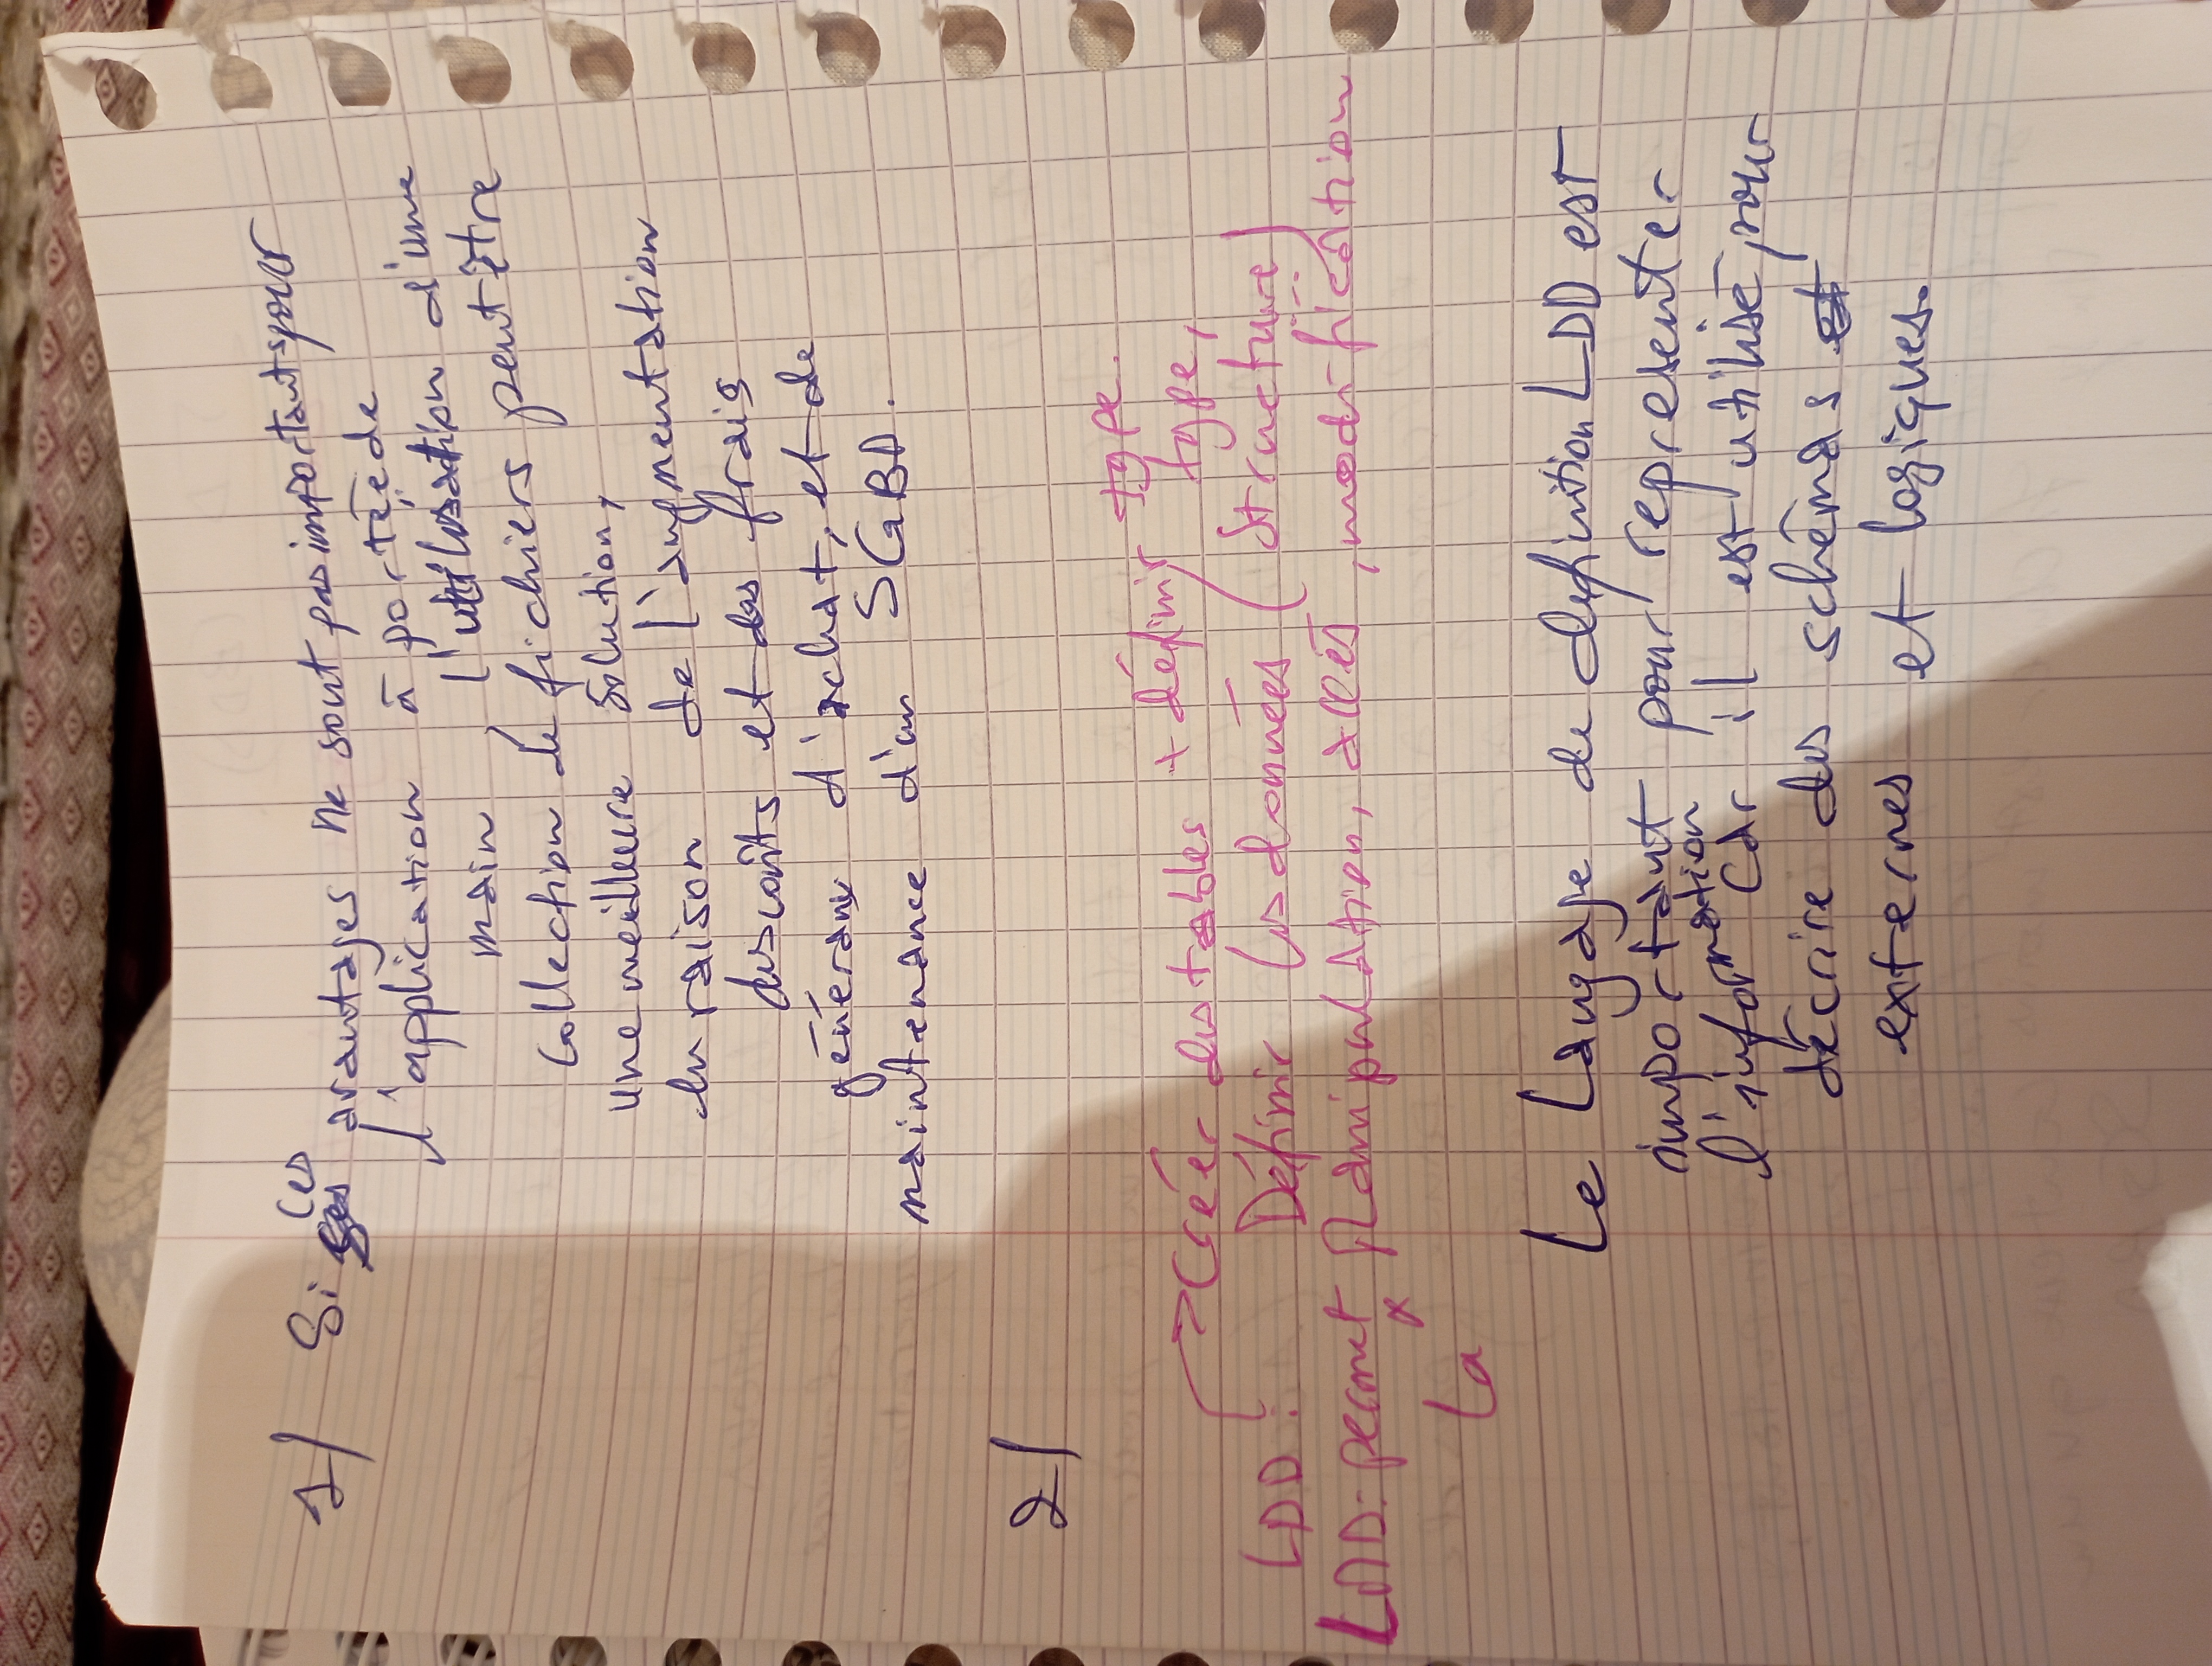 1/ Si ces avantages ne sont pas importants pour
l'application à portée de
main, l'utilisation d'une
collection de fichiers peut être
une meilleure solution,
en raison de l'augmentation
des coûts et des frais
généraux d'achat, et de
maintenance d'un SGBD.
2/
→ créer des tables + définir type.
type,
LDD: Définir les données (structure)
LMD: permet Manipulation, accès, modification
la
Le Langage de definition LDD est
important pour representer
l'information car il est utilisé pour
décrire des schémas
externes et logiques.